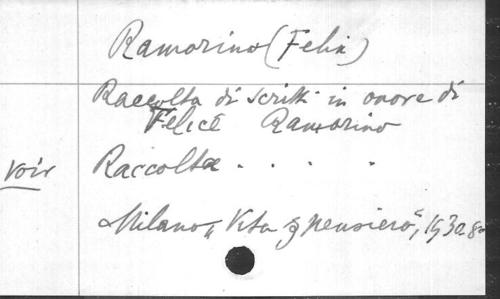 Ramorino (Felix)
Raccolta di scritti in onore di
Felice Ramorino
voir Raccolta . . . .
Milano, "Vita e pensiero", 1930. 8o